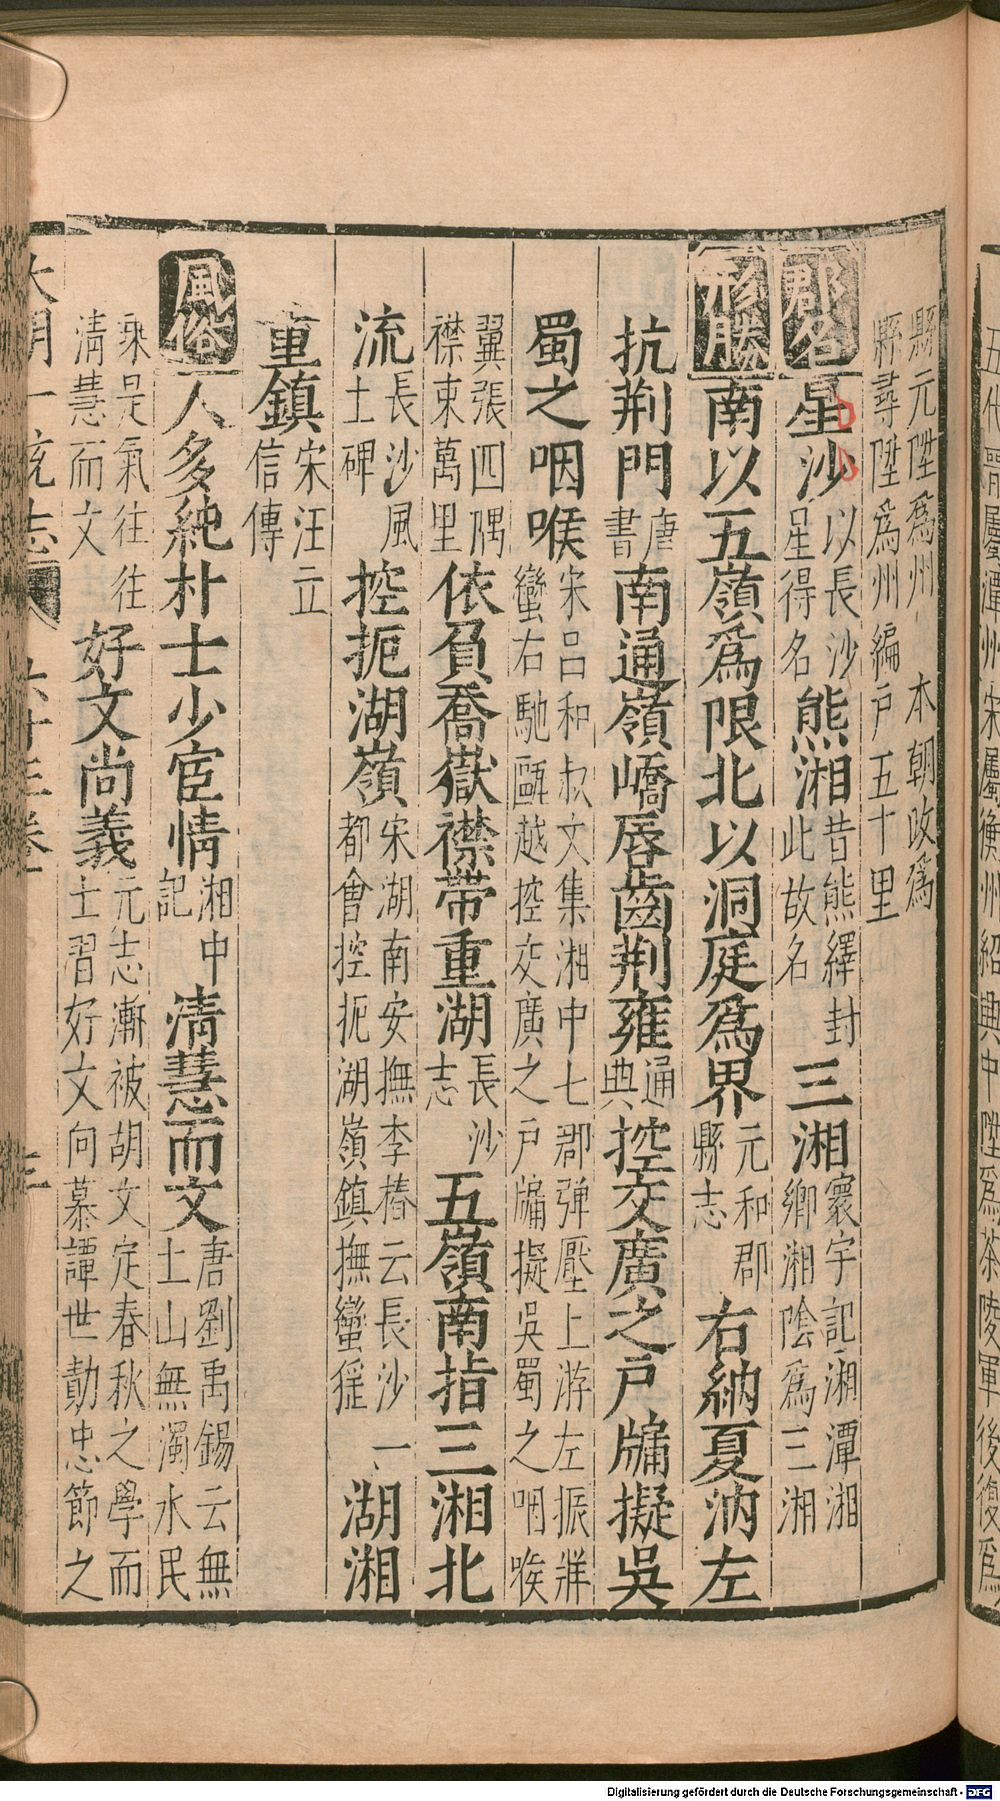 五代晉屬潭州宋屬衡州紹興中陞爲茶陵軍後復爲
縣元陞爲州本朝改爲
縣尋陞爲州編戶五十里
郡名 星沙 以長沙星得名 熊湘 昔熊繹封此故名 三湘 寰宇記湘潭湘鄉湘陰爲三湘
形勝 南以五嶺爲限北以洞庭爲界 元和郡縣志 右納夏汭左
抗荆門 唐書 南通嶺嶠唇齒荆雍 通典 控交廣之戶牖擬吳
蜀之咽喉 宋呂和叔文集湘中七郡彈壓上游左振牂蠻右馳甌越控交廣之戶牖擬吳蜀之咽喉
翼張四隅襟束萬里 依負喬嶽襟帶重湖 長沙志 五嶺南指三湘北
流 長沙風土碑 控扼湖嶺 宋湖南安撫李椿云長沙一都會控扼湖嶺鎮撫蠻猺 湖湘
重鎮 宋汪立信傳
風俗 人多純朴士少宦情 湘中記 清慧而文 唐劉禹錫云無土山無濁水民
乘是氣往往清慧而文 好文尚義 元志漸被胡文定春秋之學而士習好文向慕譚世勣忠節之
大明一統志 六十三卷 三
Digitalisierung gefördert durch die Deutsche Forschungsgemeinschaft - DFG